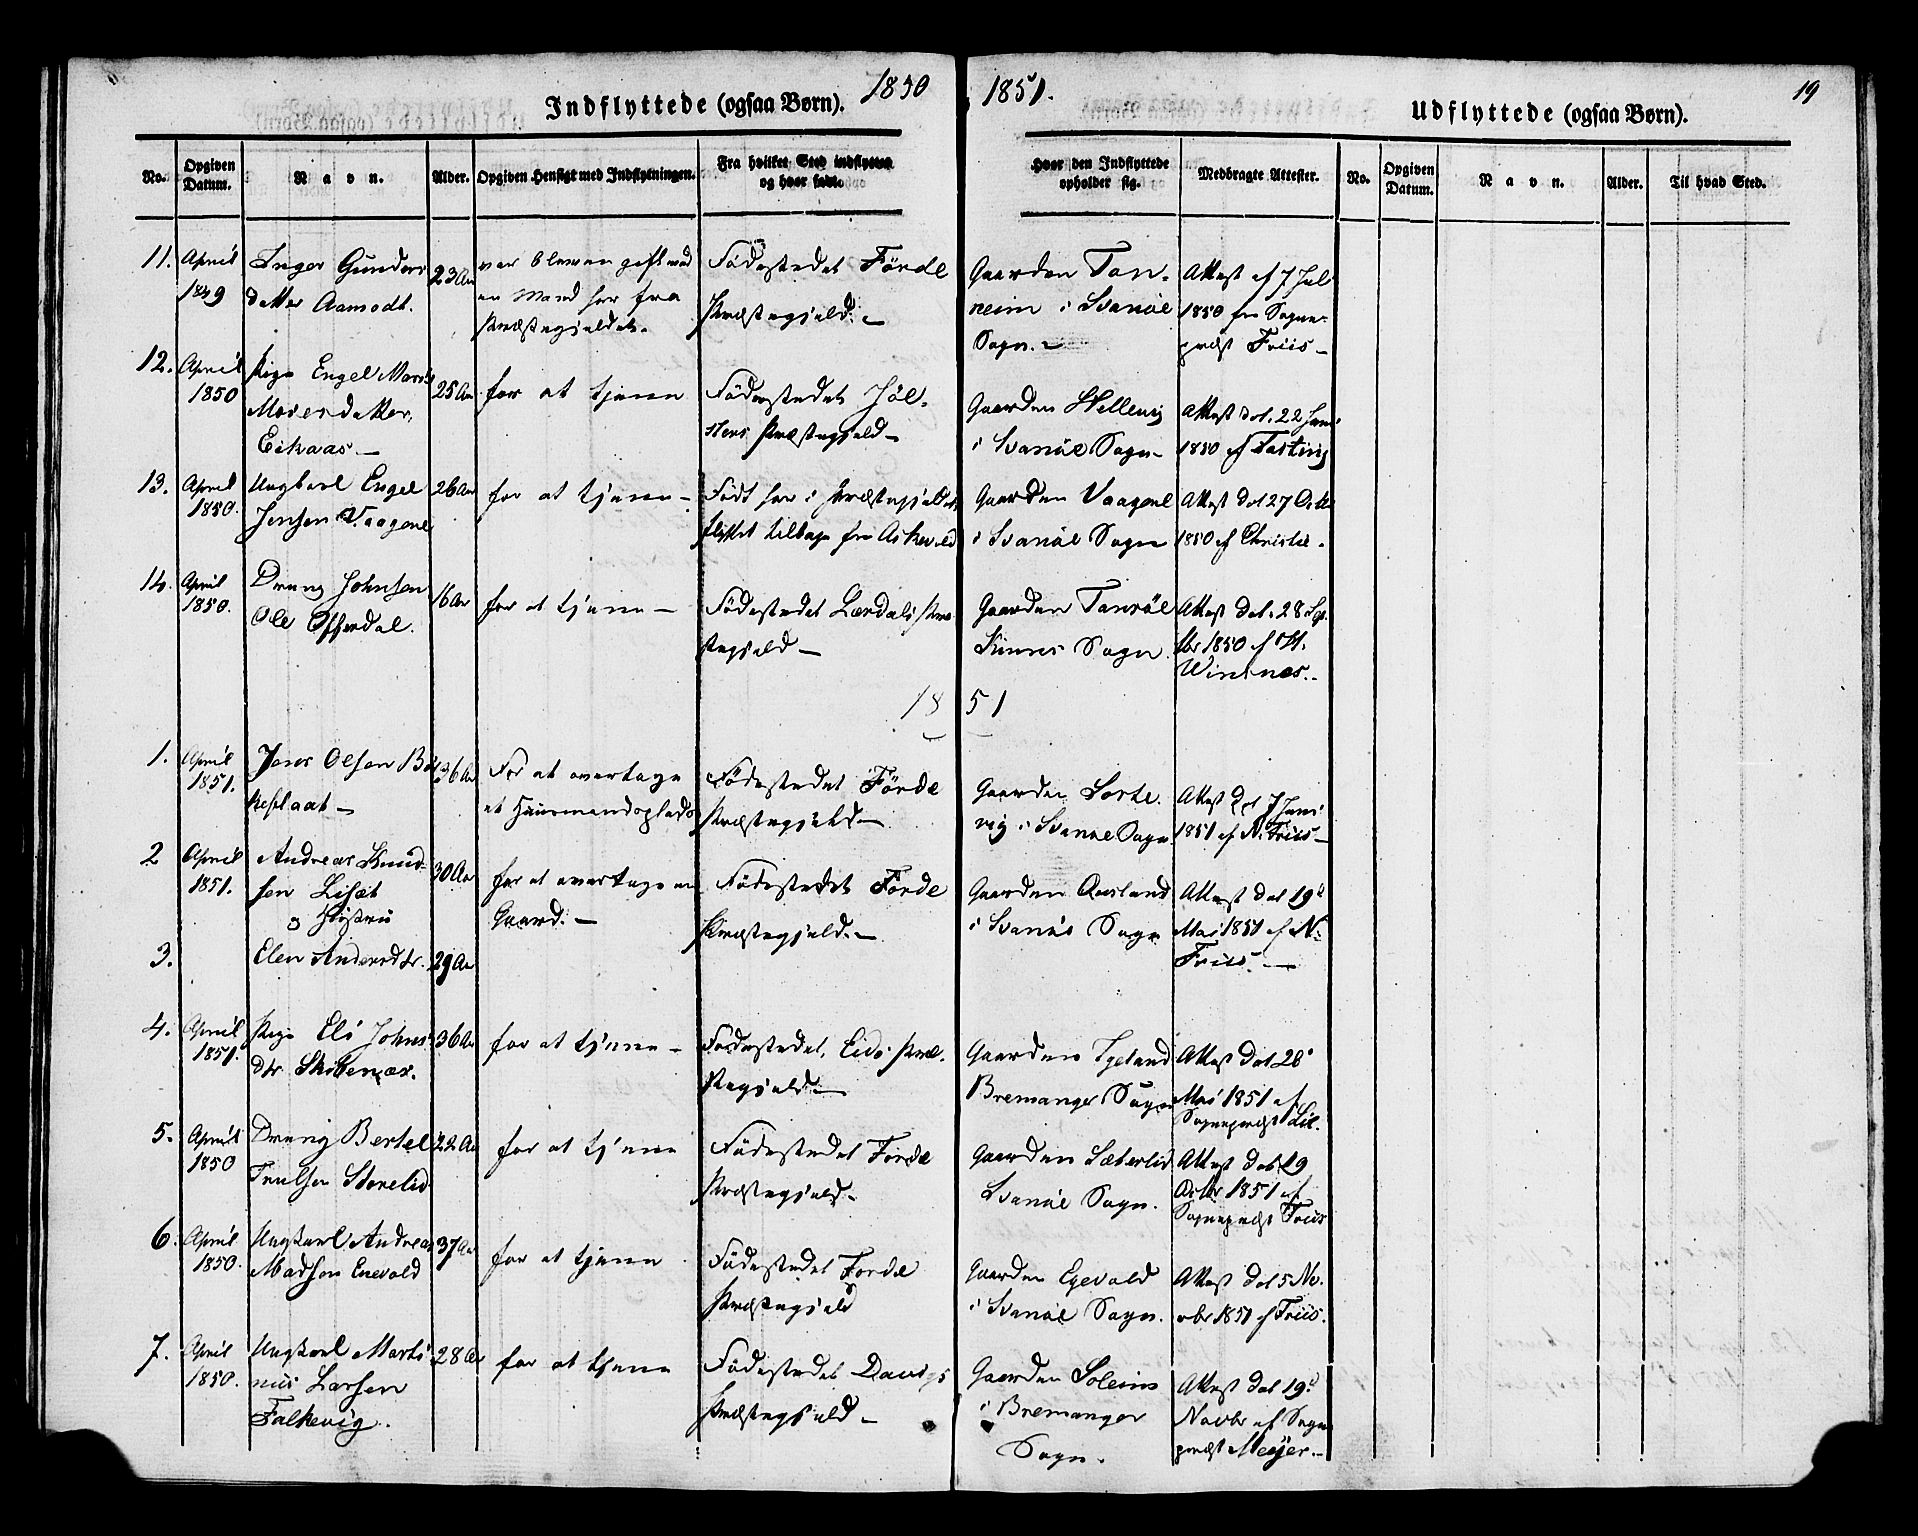 Indflyttede (ogsaa Børn). 1850
1851.
Udflyttede (ogsaa Børn).
19
No. Opgiven Datum. Navn. Alder. Opgiven Hensigt med Indflytningen. Fra hvilket Sted indflyttet og hvor født. Hvor den Indflyttede opholder sig. Medbragte Attester. No. Opgiven Datum. Navn. Alder. Til hvad Sted.
11. April 1849
Inger Gunders
datter Aamodt.
23 Aar
var bleven gift med
en Mand her fra
Præstegjeldet.
Födestedet Förde
Præstegjeld.
Gaarden
i Svanöe
Sogn.
Attest af 7 Juli
1850 fra Sogne-
præst Friis
12. April 1850
Pige Engel Marie
datter,
Eikaas
25 Aar
for at tjene
Födestedet Jöl-
sters Præstegjeld
Gaarden
i Svanöe Sogn
Attest dat. 22
1850 af
13. April 1850.
Ungkarl Engel
Jensen Vaagene
26 Aar
for at tjene
Født her i Præstegjeldet,
flyttet tilbage fra Askevold
Gaarden Vaagene
i Svanöe Sogn
Attest dat 27
1850 af Christie.
14. April 1850.
Dreng Johnsen
Ole Offerdal.
16 Aar
for at tjene
Födestedet Lærdals Præ-
stegjeld
Gaarden Tansöe
Kinns Sogn
Attest dat. 28 Sep
tbr 1850 af H.
1851
1. April 1851.
Jens Olsen
36 Aar
For at overtage
et Huusmandsplads
Födestedet Förde
Præstegjeld
Gaarden Sorte-
vig i Svanöe Sogn
Attest dat 7 Juni
1851 af N. Friis
2 April 1851.
Andreas Knud-
sen Lisæt
og Hustru
30 Aar
for at overtage en
Gaard.
Födestedet Förde
Præstegjeld.
Gaarden
i Svanöe Sogn
Attest dat 19d
Mai 1851 af N.
Friis.
3.
Elen Andersdtr.
29 Aar
4. April 1851.
Pige Eli Johns
dtr Skibenæs.
36 Aar
for at tjene
Födestedet, Eids Præ-
stegjeld
Gaarden Igeland
Bremanger Sogn
Attest dat 26
Mai 1851 af
Sognepræst
5. April 1850
Dreng Bertel
Trulsen Storelid
22 Aar
for at tjene
Födestedet Förde
Præstegjeld
Gaarden Sæterlid
Svanöe Sogn.
Attest dat 19
Octbr 1851 af
Sognepræst Friis
6. April 1850.
Ungkarl Andreas
Madsen Enevold
37 Aar
for at tjene
Födestedet Förde
Præstegjeld
Gaarden Egevold
i Svanöe Sogn.
Attest dat 5 No-
vbr 1851 af Friis.
7. April 1850.
Ungkarl Marti-
nus Larsen
Falkevig.
28 Aar
for at tjene
Födestedet Davigs
Præstegjeld
Gaarden Soleim
i Bremanger
Sogn.
Attest dat 19d
Novbr af Sogne
præst Meyer.